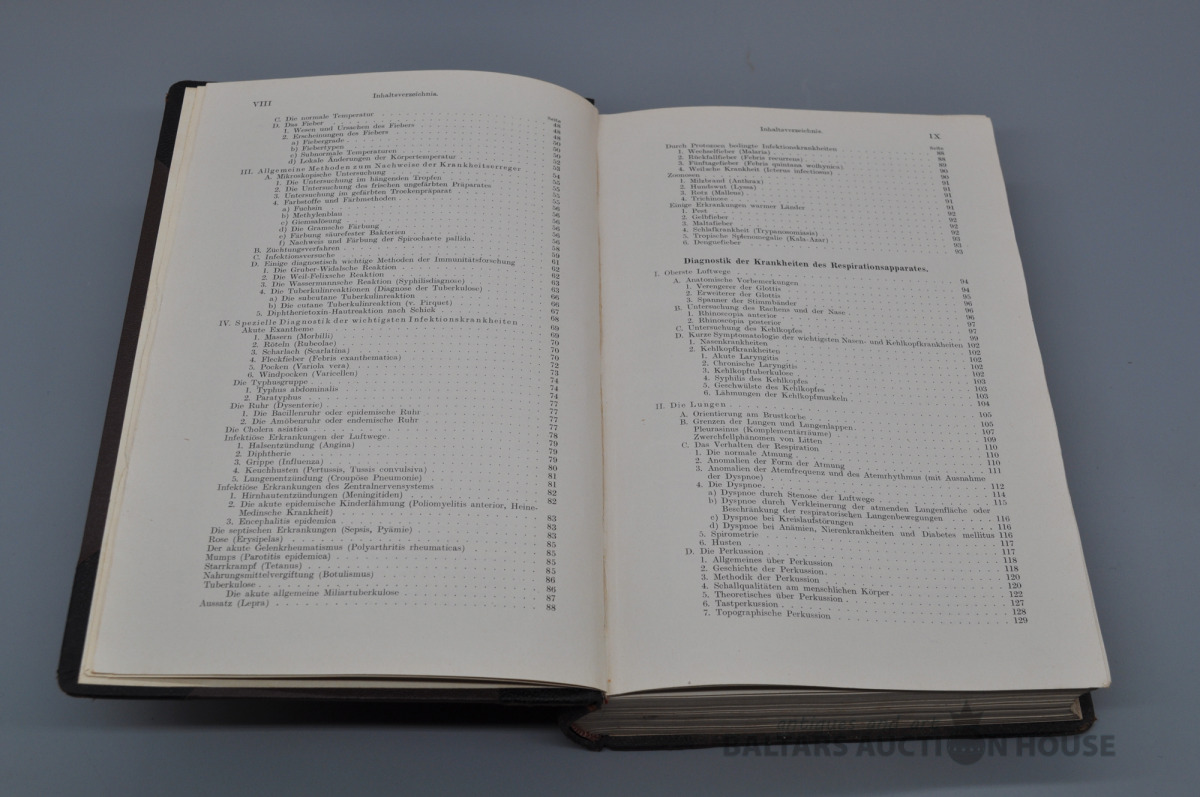 VIII Inhaltsverzeichnis.
Seite
C. Die normale Temperatur 48
D. Das Fieber 48
1. Wesen und Ursachen des Fiebers 48
2. Erscheinungen des Fiebers
a) Fiebergrade
b) Fiebertypen
c) Subnormale Temperaturen
d) Lokale Änderungen der Körpertemperatur
III. Allgemeine Methoden zum Nachweise der Krankheitserreger
A. Mikroskopische Untersuchung
1. Die Untersuchung im hängenden Tropfen
2. Die Untersuchung des frischen ungefärbten Präparates
3. Untersuchung im gefärbten Trockenpräparat
4. Farbstoffe und Färbmethoden
a) Fuchsin
b) Methylenblau
c) Giemsalösung
d) Die Gramsche Färbung
e) Färbung säurefester Bakterien
f) Nachweis und Färbung der Spirochaete pallida
B. Züchtungsverfahren
C. Infektionsversuche
D. Einige diagnostisch wichtige Methoden der Immunitätsforschung
1. Die Gruber-Widalsche Reaktion
2. Die Weil-Felixsche Reaktion
3. Die Wassermannsche Reaktion (Syphilisdiagnose)
4. Die Tuberkulinreaktionen (Diagnose der Tuberkulose)
a) Die subcutane Tuberkulinreaktion
b) Die cutane Tuberkulinreaktion (v. Pirquet)
5. Diphtherietoxin-Hautreaktion nach Schick
IV. Spezielle Diagnostik der wichtigsten Infektionskrankheiten
Akute Exantheme
1. Masern (Morbilli)
2. Röteln (Rubeolae)
3. Scharlach (Scarlatina)
4. Fleckfieber (Febris exanthematica)
5. Pocken (Variola vera)
6. Windpocken (Varicellen)
Die Typhusgruppe
1. Typhus abdominalis
2. Paratyphus
Die Ruhr (Dysenterie)
1. Die Bacillenruhr oder epidemische Ruhr
2. Die Amöbenruhr oder endemische Ruhr
Die Cholera asiatica
Infektiöse Erkrankungen der Luftwege
1. Halsentzündung (Angina)
2. Diphtherie
3. Grippe (Influenza)
4. Keuchhusten (Pertussis, Tussis convulsiva)
5. Lungenentzündung (Croupöse Pneumonie)
Infektiöse Erkrankungen des Zentralnervensystems
1. Hirnhautentzündungen (Meningitiden)
2. Die akute epidemische Kinderlähmung (Poliomyelitis anterior, Heine-
Medinsche Krankheit)
3. Encephalitis epidemica
Die septischen Erkrankungen (Sepsis, Pyämie)
Rose (Erysipelas)
Der akute Gelenkrheumatismus (Polyarthritis rheumatica)
Mumps (Parotitis epidemica)
Starrkrampf (Tetanus)
Nahrungsmittelvergiftung (Botulismus)
Tuberkulose
Die akute allgemeine Miliartuberkulose 87
Aussatz (Lepra) 88
Inhaltsverzeichnis. IX
Seite
Durch Protozoen bedingte Infektionskrankheiten
1. Wechselfieber (Malaria)
2. Rückfallfieber (Febris recurrens)
3. Fünftagefieber (Febris quintana wolhynica)
4. Weilsche Krankheit (Icterus infectiosus)
Zoonosen
1. Milzbrand (Anthrax)
2. Hundswut (Lyssa)
3. Rotz (Malleus)
4. Trichinose
Einige Erkrankungen warmer Länder
1. Pest
2. Gelbfieber
3. Maltafieber
4. Schlafkrankheit (Trypanosomiasis)
5. Tropische Splenomegalie (Kala-Azar)
6. Denguefieber
Diagnostik der Krankheiten des Respirationsapparates.
I. Oberste Luftwege
A. Anatomische Vorbemerkungen
1. Verengerer der Glottis
2. Erweiterer der Glottis
3. Spanner der Stimmbänder
B. Untersuchung des Rachens und der Nase
1. Rhinoscopia anterior
2. Rhinoscopia posterior
C. Untersuchung des Kehlkopfes
D. Kurze Symptomatologie der wichtigsten Nasen- und Kehlkopfkrankheiten 102
1. Nasenkrankheiten
2. Kehlkopfkrankheiten
1. Akute Laryngitis
2. Chronische Laryngitis
3. Kehlkopftuberkulose
4. Syphilis des Kehlkopfes
5. Geschwülste des Kehlkopfes
6. Lähmungen der Kehlkopfmuskeln
II. Die Lungen
A. Orientierung am Brustkorbe
B. Grenzen der Lungen und Lungenlappen
Pleurasinus (Komplementärräume)
Zwerchfellphänomen von Litten
C. Das Verhalten der Respiration
1. Die normale Atmung
2. Anomalien der Form der Atmung
3. Anomalien der Atemfrequenz und des Atemrhythmus (mit Ausnahme
der Dyspnoe)
4. Die Dyspnoe
a) Dyspnoe durch Stenose der Luftwege
b) Dyspnoe durch Verkleinerung der atmenden Lungenfläche oder
Beschränkung der respiratorischen Lungenbewegungen
c) Dyspnoe bei Kreislaufstörungen
d) Dyspnoe bei Anämien, Nierenkrankheiten und Diabetes mellitus 116
5. Spirometrie
6. Husten
D. Die Perkussion
1. Allgemeines über Perkussion
2. Geschichte der Perkussion
3. Methodik der Perkussion
4. Schallqualitäten am menschlichen Körper
5. Theoretisches über Perkussion
6. Tastperkussion
7. Topographische Perkussion 129
antiques and art
BALTARS AUCTION HOUSE